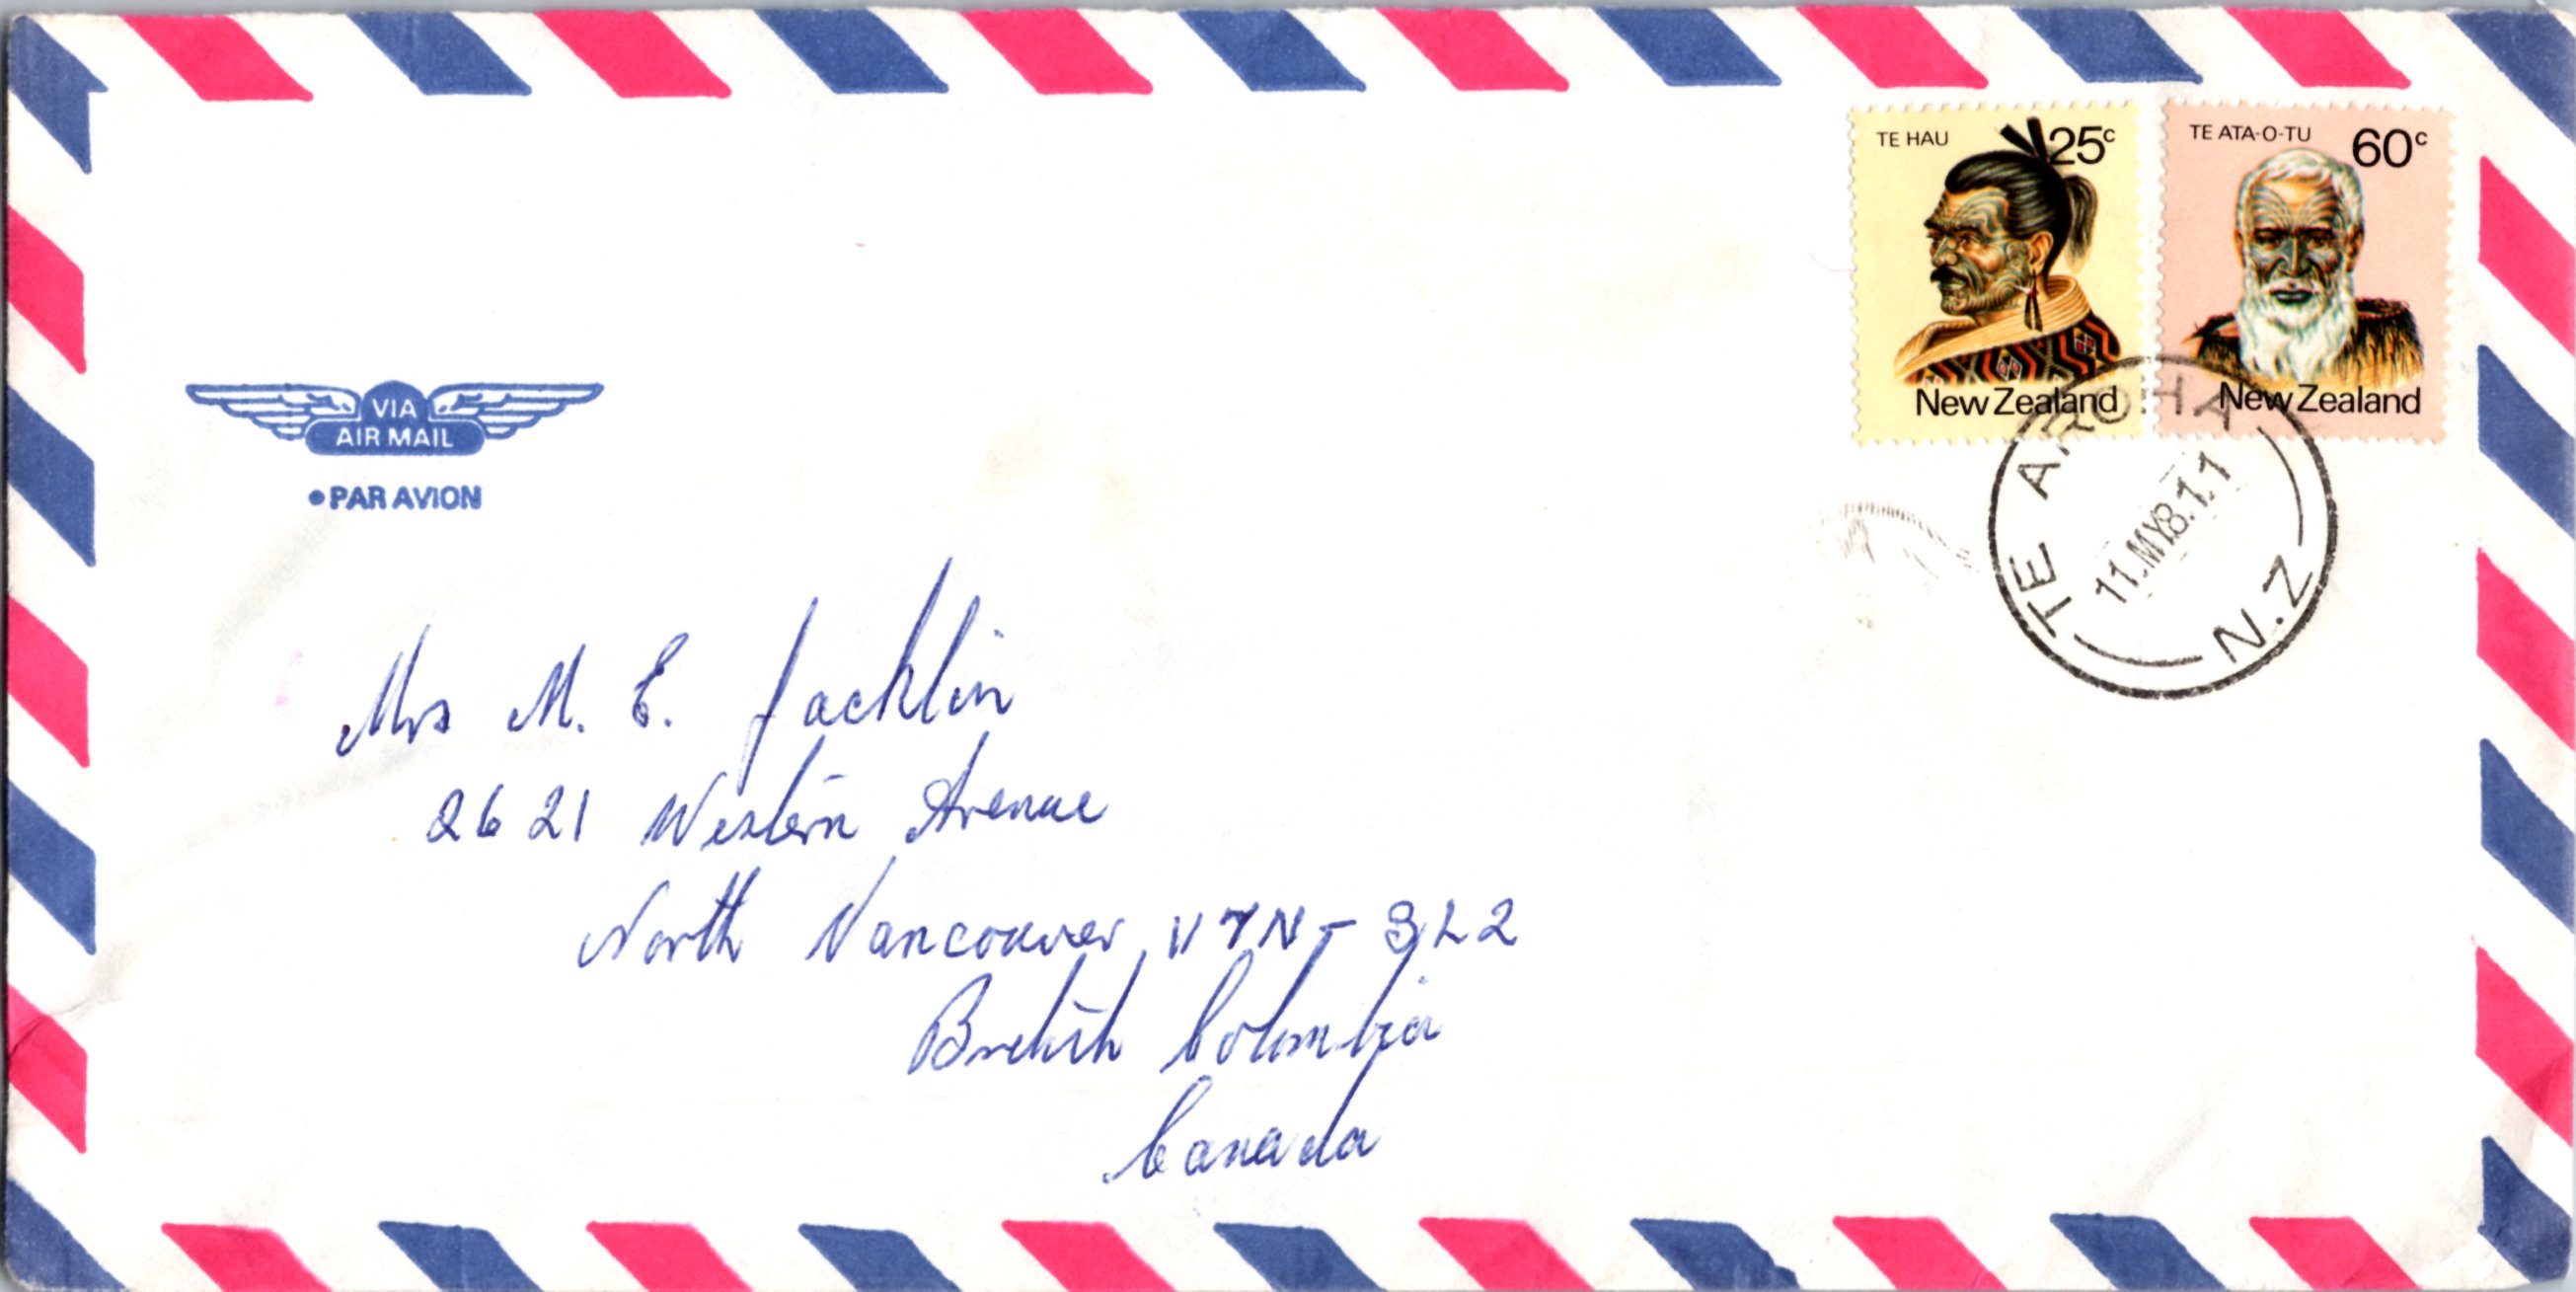 TE HAU 25c
New Zealand
TE ATA-O-TU 60c
New Zealand
VIA
AIR MAIL
•PAR AVION
TE AROHA
11.MY81.1
N.Z
Mrs M. E. Jacklin
2621 Western Avenue
North Vancouver V7N-3L2
British Columbia
Canada